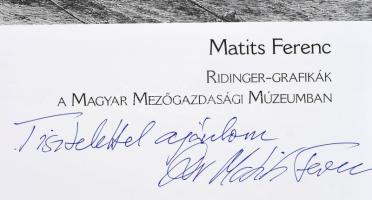 Matits Ferenc
RIDINGER-GRAFIKÁK
A MAGYAR MEZŐGAZDASÁGI MÚZEUMBAN
Tisztelettel ajánlom
Dr Matits Ferenc